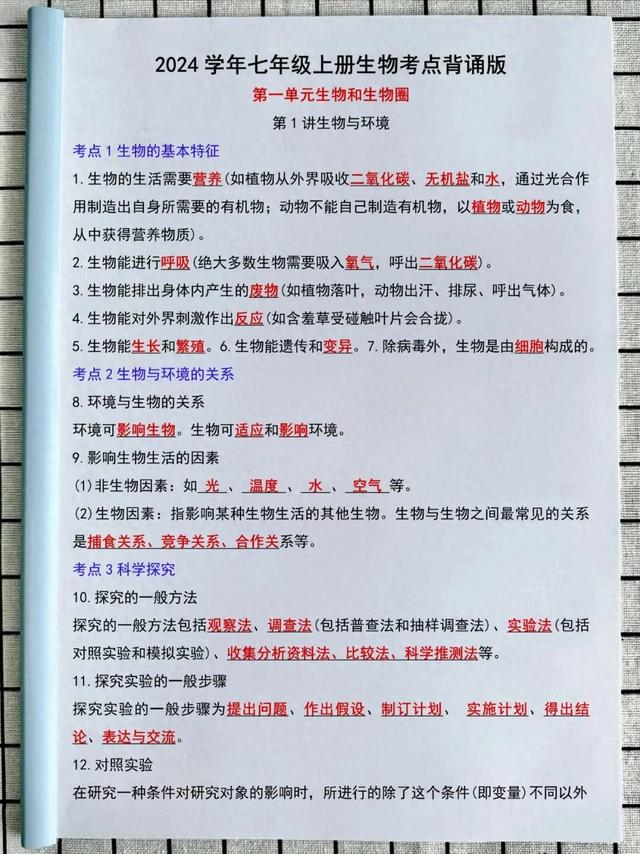 2024 学年七年级上册生物考点背诵版
第一单元生物和生物圈
第 1 讲生物与环境
考点 1 生物的基本特征
1. 生物的生活需要营养(如植物从外界吸收二氧化碳、无机盐和水，通过光合作
用制造出自身所需要的有机物；动物不能自己制造有机物，以植物或动物为食，
从中获得营养物质)。
2. 生物能进行呼吸(绝大多数生物需要吸入氧气，呼出二氧化碳)。
3. 生物能排出身体内产生的废物(如植物落叶，动物出汗、排尿、呼出气体)。
4. 生物能对外界刺激作出反应(如含羞草受碰触叶片会合拢)。
5. 生物能生长和繁殖。6. 生物能遗传和变异。7. 除病毒外，生物是由细胞构成的。
考点 2 生物与环境的关系
8. 环境与生物的关系
环境可影响生物。生物可适应和影响环境。
9. 影响生物生活的因素
(1)非生物因素：如 光 、 温度 、 水 、 空气 等。
(2)生物因素：指影响某种生物生活的其他生物。生物与生物之间最常见的关系
是捕食关系、竞争关系、合作关系等。
考点 3 科学探究
10. 探究的一般方法
探究的一般方法包括观察法、调查法(包括普查法和抽样调查法)、实验法(包括
对照实验和模拟实验)、收集分析资料法、比较法、科学推测法等。
11. 探究实验的一般步骤
探究实验的一般步骤为提出问题、作出假设、制订计划、 实施计划、得出结
论、表达与交流。
12. 对照实验
在研究一种条件对研究对象的影响时，所进行的除了这个条件(即变量)不同以外